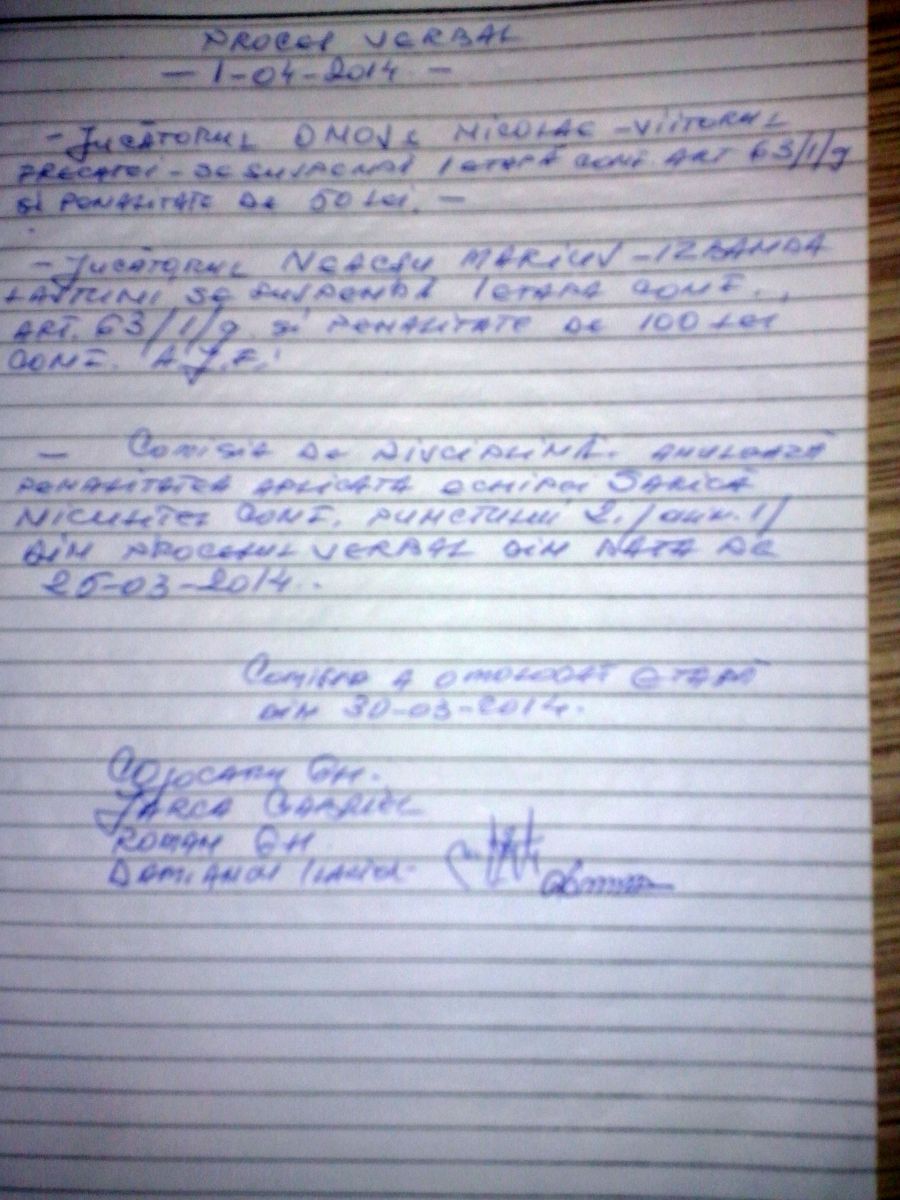 PROCES VERBAL
— 1-04-2014 —
- JUCĂTORUL NICOLAE - VIITORUL
FRECATEI - SE SUSPENDĂ 1 ETAPĂ CONF. ART 63/1/g
ȘI PENALITATE DE 50 LEI. —
- JUCĂTORUL NEACȘU MARIUS - IZBANDA
LASTUNI SE SUSPENDĂ 1 ETAPĂ CONF.
ART. 63/1/g ȘI PENALITATE DE 100 LEI
CONF. A.J.F.
- COMISIA DE DISCIPLINĂ ANULEAZĂ
PENALITATEA APLICATĂ ECHIPEI SARICĂ
NICULIȚEL CONF. PUNCTULUI 2. /
DIN PROCESUL VERBAL DIN DATA DE
25-03-2014.
COMISIA A OMOLOGAT ETAPA
DIN 30-03-2014.
COJOCARU GH.
JARCA GABRIEL
ROMAN GH
DAMIANOV